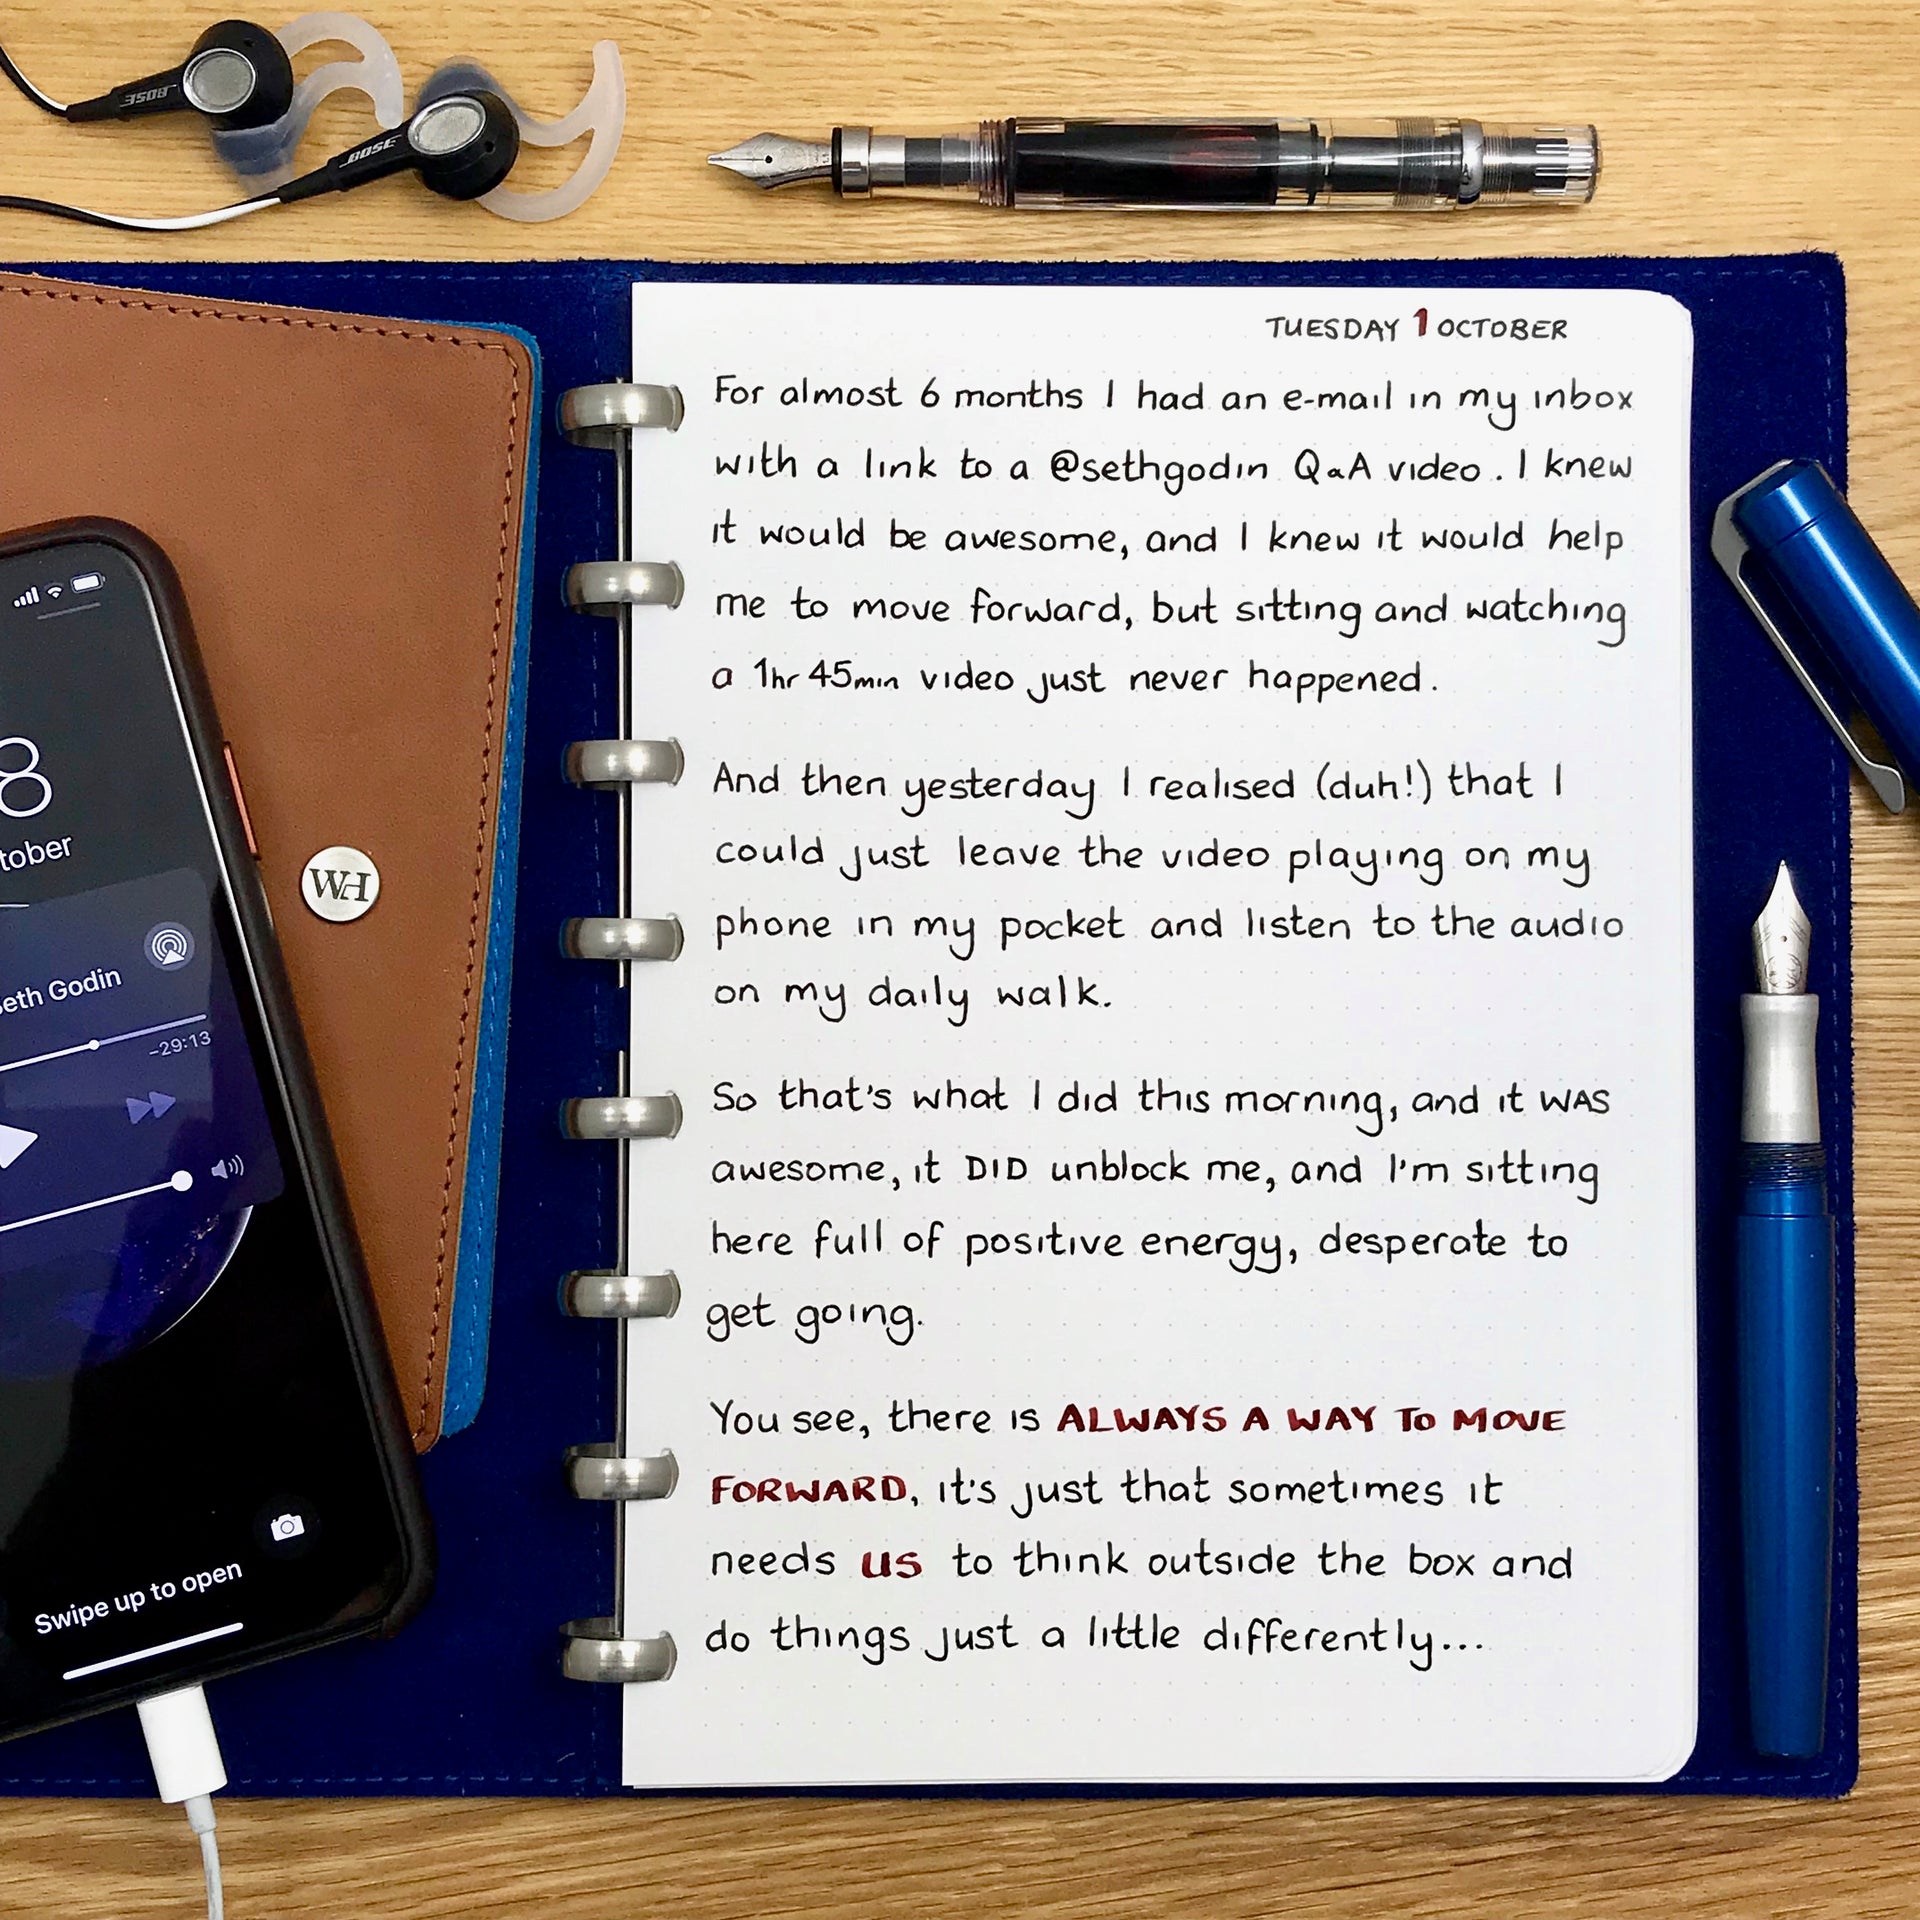 BOSE
BOSE
TUESDAY 1 OCTOBER
For almost 6 months I had an e-mail in my inbox
with a link to a @sethgodin Q&A video. I knew
it would be awesome, and I knew it would help
me to move forward, but sitting and watching
a 1hr 45min video just never happened.
And then yesterday I realised (duh!) that I
could just leave the video playing on my
phone in my pocket and listen to the audio
on my daily walk.
So that's what I did this morning, and it WAS
awesome, it DID unblock me, and I'm sitting
here full of positive energy, desperate to
get going.
You see, there is ALWAYS A WAY TO MOVE
FORWARD, it's just that sometimes it
needs us to think outside the box and
do things just a little differently...
8
tober
eth Godin
-29:13
Swipe up to open
WH